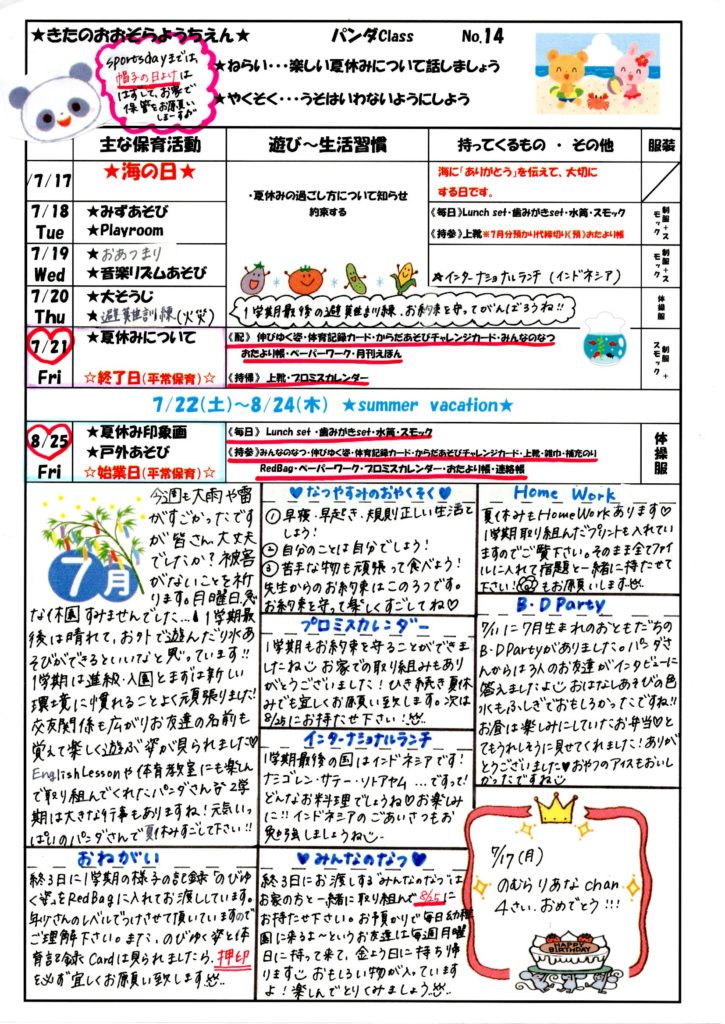 ★きたのおおぞらようちえん★
パンダClass
No.14
sportsdayまでは、
帽子の日よけは
はずして、お家で
保管をお願い
しまーす
★ねらい・・・楽しい夏休みについて話しましょう
★やくそく・・・うそはいわないようにしよう
主な保育活動
遊び～生活習慣
持ってくるもの ・ その他
服装
7/17
★海の日★
海に「ありがとう」を伝えて、大切に
する日です。
・夏休みの過ごし方について知らせ
約束する
7/18
Tue
★みずあそび
★Playroom
《毎日》Lunch set・歯みがきset・水筒・スモック
《持参》上靴 ※7月分預かり代締切り(預)おたより帳
制服+スモック
7/19
Wed
★おあつまり
★音楽リズムあそび
★インターナショナルランチ (インドネシア)
制服+スモック
7/20
Thu
★大そうじ
★避難訓練(火災)
1学期最後の避難訓練、お約束を守ってがんばろうね!!
体操服
7/21
Fri
★夏休みについて
☆終了日(平常保育)☆
《配》 伸びゆく姿・体育記録カード・からだあそびチャレンジカード・みんなのなつ
おたより帳・ペーパーワーク・月刊えほん
《持帰》 上靴・プロミスカレンダー
制服+スモック
7/22(土)～8/24(木) ★summer vacation★
8/25
Fri
★夏休み印象画
★戸外あそび
☆始業日(平常保育)☆
《毎日》 Lunch set・歯みがきset・水筒・スモック
《持参》みんなのなつ・伸びゆく姿・体育記録カード・からだあそびチャレンジカード・上靴・雑巾・補充のり
RedBag・ペーパーワーク・プロミスカレンダー・おたより帳・連絡帳
体操服
7月
今週も大雨や雷
がすごかったです
が皆さん大丈夫
でしたか?被害
がないことを祈
ります。月曜日、急
な休園すみませんでした…1学期最
後は晴れて、お外で遊んだり水あ
そびができるといいなと思っています!!
1学期は進級・入園とまずは新しい
環境に慣れることよく頑張りました!
交友関係も広がりお友達の名前も
覚えて楽しく遊ぶ姿が見られました♡
EnglishLessonや体育教室にも楽しん
で取り組んでくれたパンダさん 2学
期は大きな行事もありますね!元気いっ
ぱいのパンダさんで夏休みすごして下さい!!
おねがい
終了日に1学期の様子の記録“のびゆ
く姿”をRedBagに入れてお渡ししています。
年少さんのレベルでつけさせて頂いていますので
ご理解下さい。また、のびゆく姿と体
育記録Cardは見られましたら、押印
を必ず宜しくお願い致します
♡なつやすみのおやくそく♡
①早寝・早起き・規則正しい生活を
しよう!
②自分のことは自分でしよう!
③苦手な物も頑張って食べよう!
先生からのお約束はこの3つです。
お約束を守って楽しくすごしてね♡
プロミスカレンダー
1学期もお約束を守ることができ
ましたね お家での取り組みもあり
がとうございました!ひき続き夏休
みも宜しくお願い致します。次は
8/25にお持たせ下さい!
インターナショナルランチ
1学期最後の国はインドネシアです!
ナシゴレン・サテー・ソトアヤム…ですって!
どんなお料理でしょうね♡お楽しみ
に!!インドネシアのごあいさつもお
勉強しましょうね
♡みんなのなつ♡
終了日にお渡しする“みんなのなつ”は
お家の方と一緒に取り組んで8/25に
お持たせ下さい。お預かりで毎日幼稚
園に来るよ～というお友達は毎週月曜
日に持って来て、金よう日に持ち帰り
ます おもしろい物が入っています
よ!楽しんでとりくみましょう
Home Work
夏休みもHomeWorkあります♡
1学期取り組んだプリントも入れてい
ますのでご覧下さい。そのまま全てファイ
ルに入れて宿題と一緒に持たせて
下さい! もお願いします
B・D Party
7/11に7月生まれのおともだちの
B・DPartyがありました。パンダさ
んからは3人のお友達がインタビューに
答えましたよ おはなしあそびの色
水もふしぎでおもしろかったですね!!
お昼は楽しみにしていたお弁当♡と
てもうれしそうに見せてくれました!ありが
とうございました♡おやつのアイスもおいし
かったですね
7/17(月)
のむらりあなchan
4さい。おめでとう!!!
HAPPY
BIRTHDAY